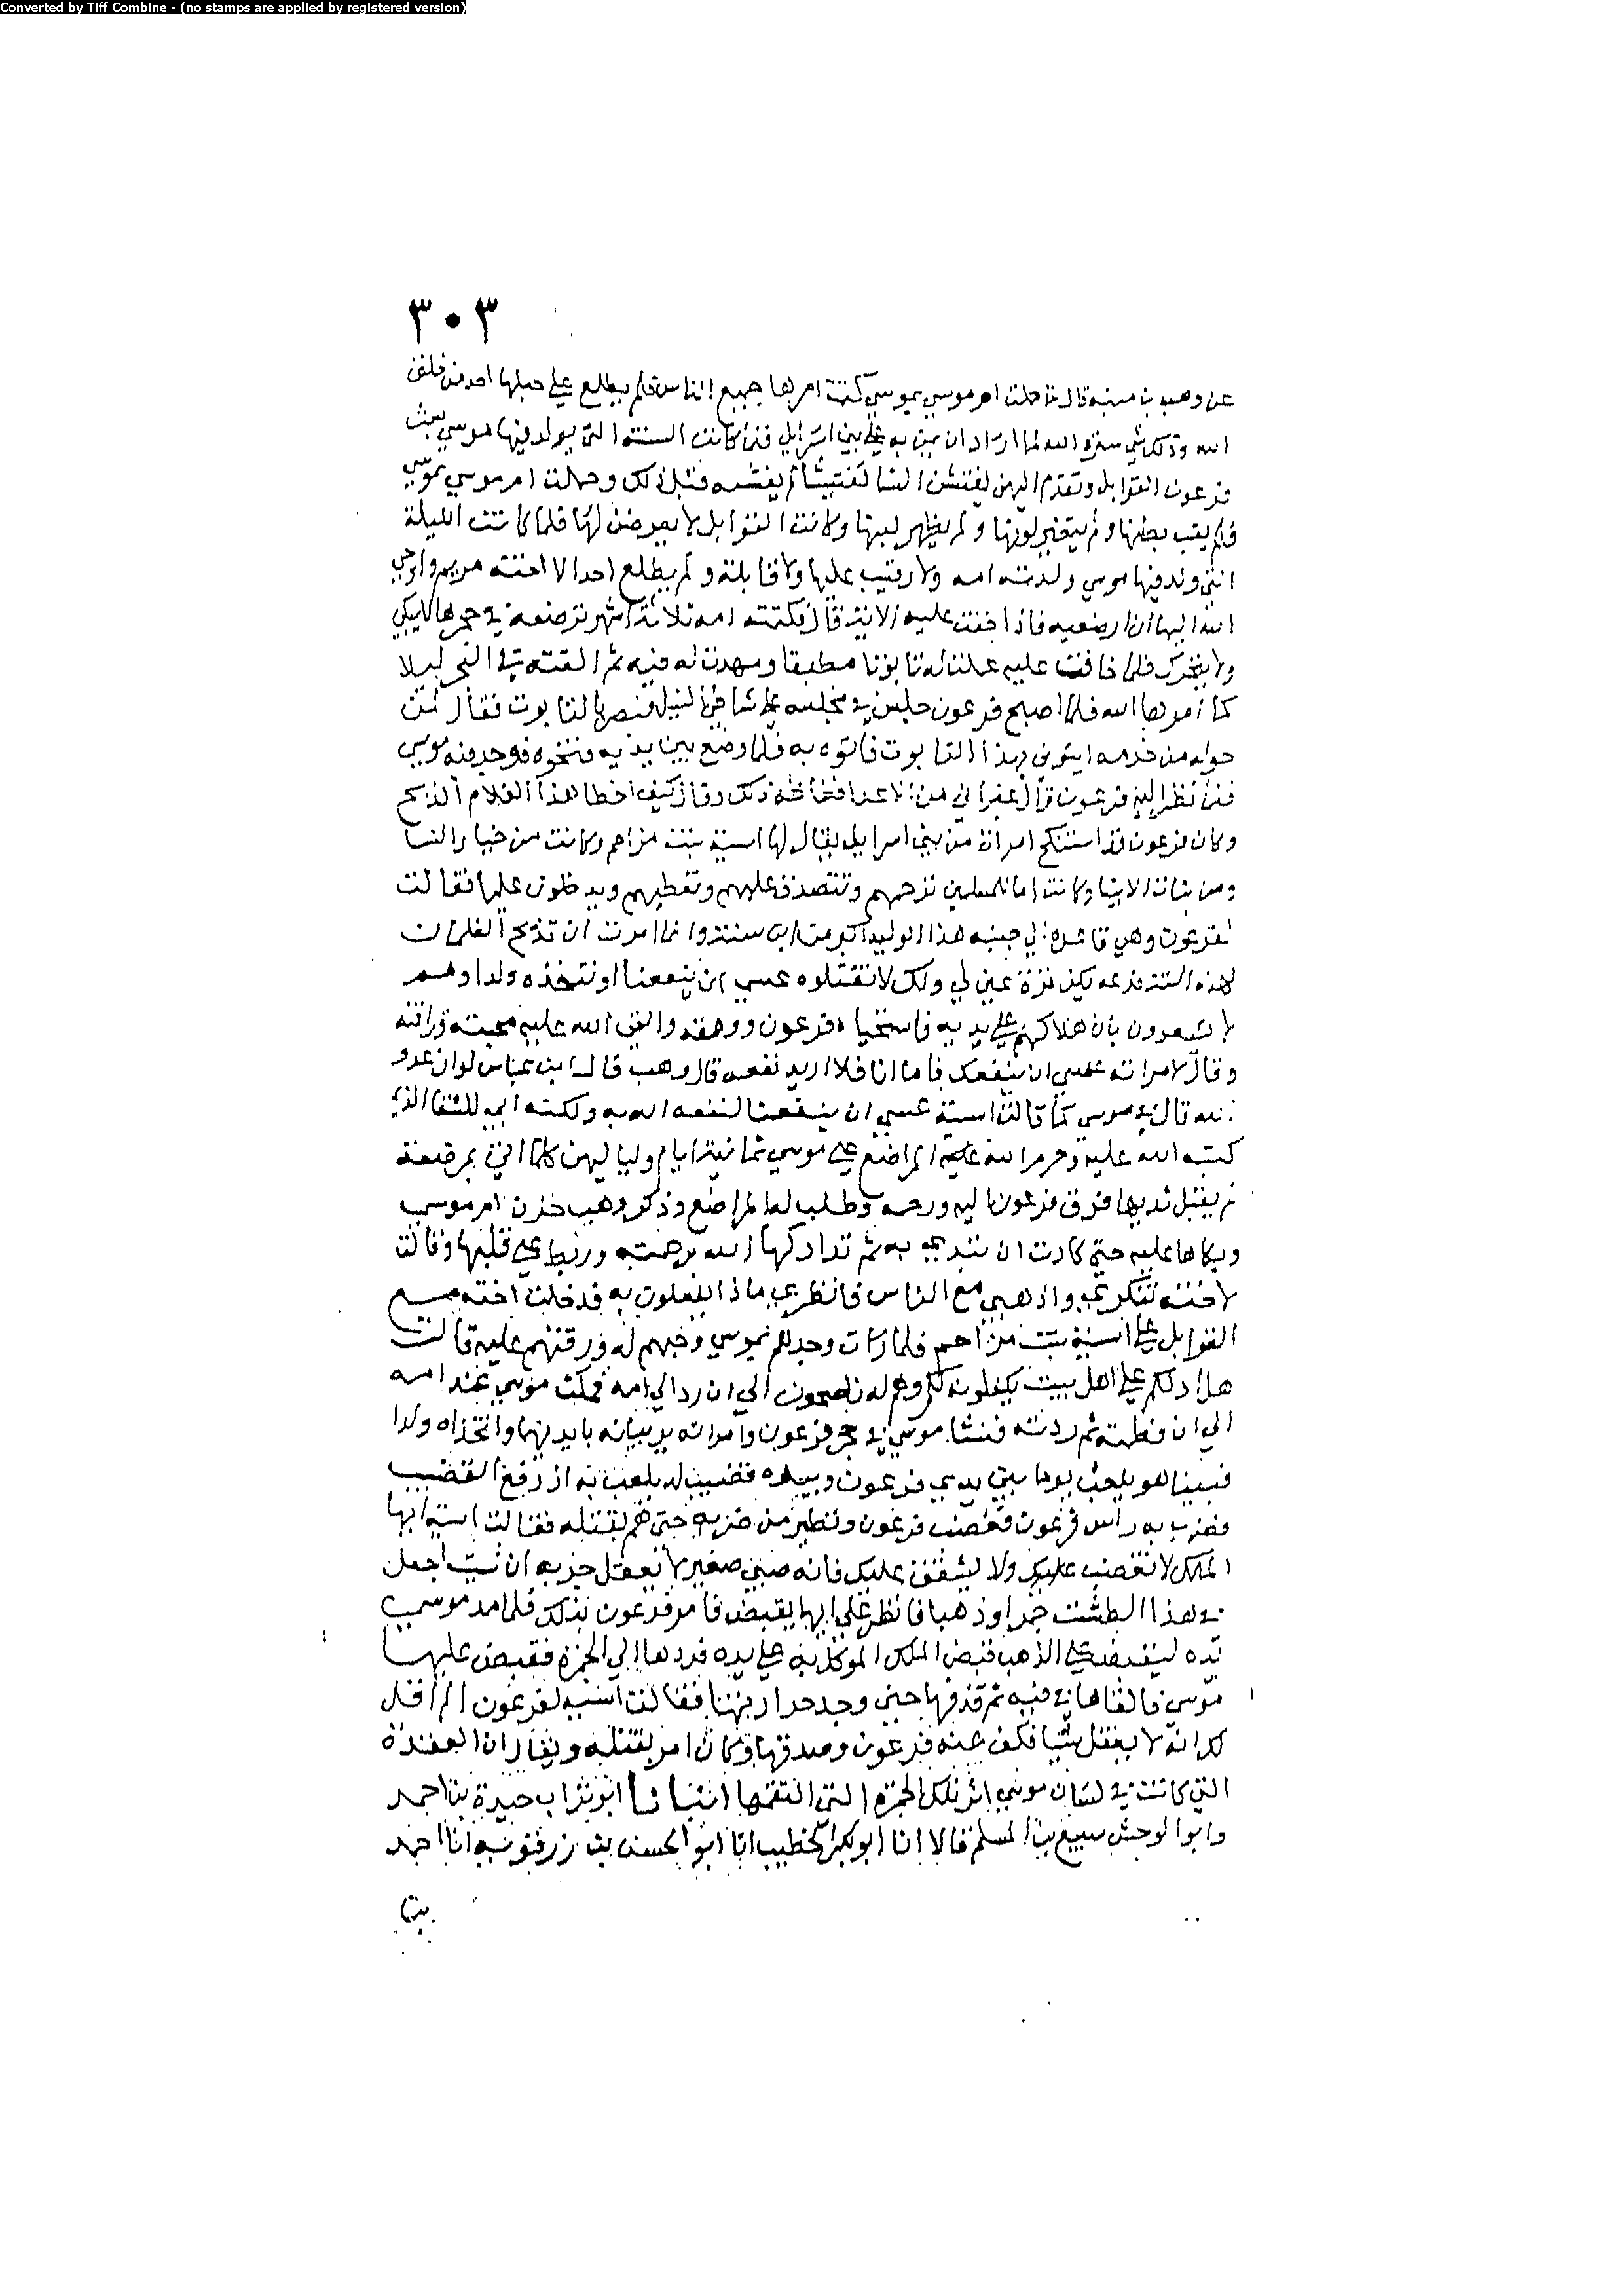 Converted by Tiff Combine - (no stamps are applied by registered version)
٣٠٣
عن وهب بن منبه قال لما حملت ام موسي بموسي كتمت امرها جميع الناس فلم يطلع علي حبلها احد من خلق
الله وذلك شي ستره الله لما اراد ان يمن به علي بني اسرايل فلما كانت السنة التي يولد فيها موسي بعث
فرعون القوابل وتقدم اليهن ليفتشن النسا تفتيشا لم يفتشنه قبل ذلك وحملت ام موسي بموسي
فلم ينب بطنها ولم يتغير لونها ولم يظهر لبنها وكانت القوابل لا يعرضن لها فلما كانت الليلة
التي ولد فيها موسي ولدته امه ولا رقيب عليها ولا قابلة ولم يطلع احد الا اخته مريم واوحي
الله اليها ان ارضعيه فاذا خفت عليه الاية قال فكتمته امه ثلاثة اشهر ترضعه في حجرها لا يبكي
ولا يتحرك فلما خافت عليه عملت له تابوتا مطبقا ومهدت له فيه ثم القته في البحر ليلا
كما امرها الله فلما اصبح فرعون جلس في مجلسه علي شاطي النيل فبصر بالتابوت فقال لمن
حوله من خدمه ايتوني بهذا التابوت فاتوه به فلما وضع بين يديه فتحوه فوجد فيه موسي
فلما نظر اليه فرعون قال عبراني من الاعدا فغاظه ذلك وقال كيف اخطا هذا الغلام الذبح
وكان فرعون قد استنكح امراة من بني اسرايل يقال لها اسية بنت مزاحم وكانت من خيار النسا
ومن بنات الانبيا وكانت اما للمسلمين ترحمهم وتتصدق عليهم وتعطيهم ويدخلون عليها فقالت
لفرعون وهي قاعدة الي جنبه هذا الوليد اكبر من ابن سنة وانما امرت ان تذبح الغلمان
لهذه السنة فدعه يكن قرة عين لي ولك لا تقتلوه عسي ان ينفعنا او نتخذه ولدا وهم
لا يشعرون بان هلاكهم علي يديه فاستحياه فرعون وومقه والقي الله عليه محبته ورافته
وقال لامراته عسي ان ينفعك فاما انا فلا اريد نفعه قال وهب قال ابن عباس لو ان عدو
الله قال في موسي كما قالت اسية عسي ان ينفعنا لنفعه الله به ولكنه ابي للشقا الذي
كتبه الله عليه وحرم الله عليه المراضع علي موسي ثمانية ايام ولياليهن كلما اتي بمرضعة
لم يقبل ثديها فرق فرعون اليه ورحمه وطلب له المراضع وذكر وهب حزن ام موسي
وبكاها عليه حتي كادت ان تبدي به ثم تداركها الله برحمته وربط علي قلبها وقالت
لاخته تنكري واذهبي مع الناس فانظري ماذا يفعلون به فدخلت اخته مع
القوابل علي اسية بنت مزاحم فلما رات وجدهم بموسي وحبهم له ورقتهم عليه قالت
هل ادلكم علي اهل بيت يكفلونه لكم وهم له ناصحون الي ان رد الي امه فمكث موسي عند امه
الي ان فطمته ثم ردته فنشا موسي في حجر فرعون وامراته يربيانه بايديهما واتخذاه ولدا
فبينا هو يلعب يوما بين يدي فرعون وبيده قضيب له يلعب به اذ رفع القضيب
فضرب به راس فرعون فغضب فرعون وتطير من ضربه حتي هم بقتله فقالت اسية ايها
الملك لا تغضب عليك ولا يشقن عليك فانه صبي صغير لا يعقل جربه ان شيت اجعل
في هذا الطشت جمرا وذهبا فانظر علي ايها يقبض فامر فرعون بذلك فلما مد موسي
يده ليقبض علي الذهب قبض الملك الموكل به علي يده فردها الي الجمرة فقبض عليها
موسي فالقاها في فيه ثم قذفها حين وجد حرارتها فقالت اسية لفرعون الم اقل
لك انه لا يعقل شيا فكف عنه فرعون وصدقها وكان امر بقتله ويقال ان العقدة
التي كانت في لسان موسي اثر تلك الجمرة التي التقمها انبانا ابو تراب حيدرة بن احمد
وابو الوحش سبيع بن المسلم قالا انا ابو بكر الخطيب انا ابو الحسن بن رزقويه انا احمد
بن